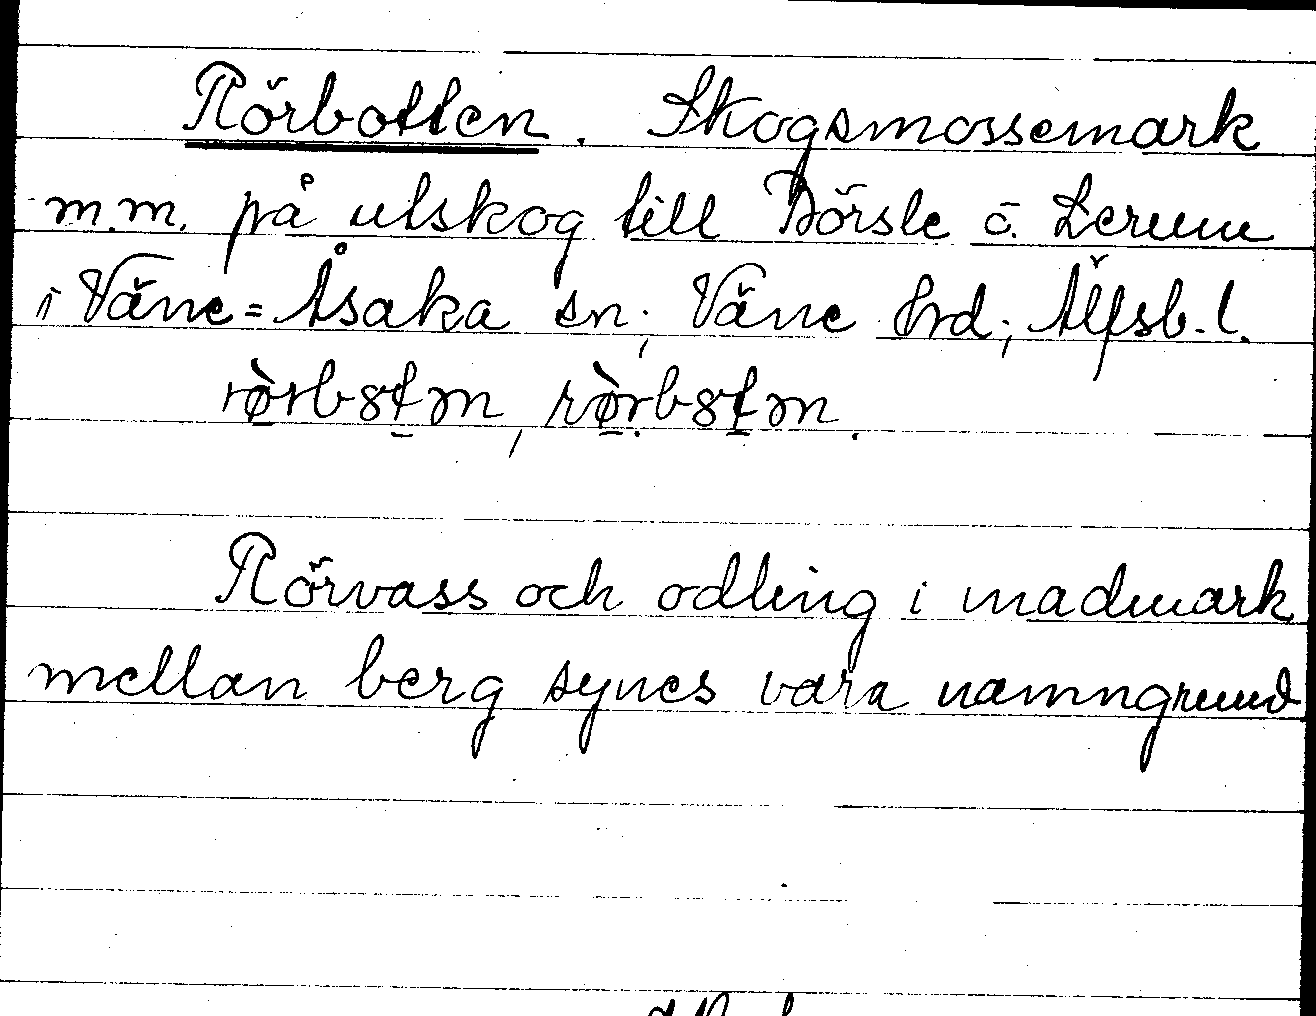 Rörbotten. Skogsmossemark
m.m. på utskog till Börsle o. Lerum
i Väne=Åsaka sn; Väne hrd; Älfsb. l.
rö̀rbȣtm, rö̀rbȣtm.
Rörvass och odling i madmark
mellan berg synes vara namngrund